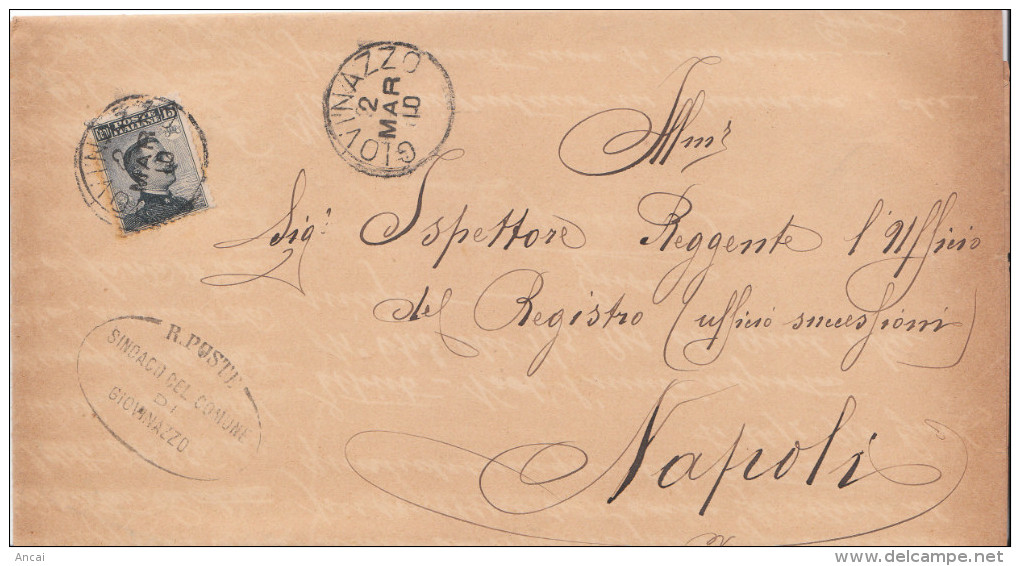 GIOVINAZZO
2
MAR
10
POSTE
ITALIANE
15
MAR
10
Illmo
Sigr Ispettore Reggente l'Ufficio
del Registro (ufficio successioni)
Napoli
R. POSTE
SINDACO DEL COMUNE
DI
GIOVINAZZO
Ancai
www.delcampe.net